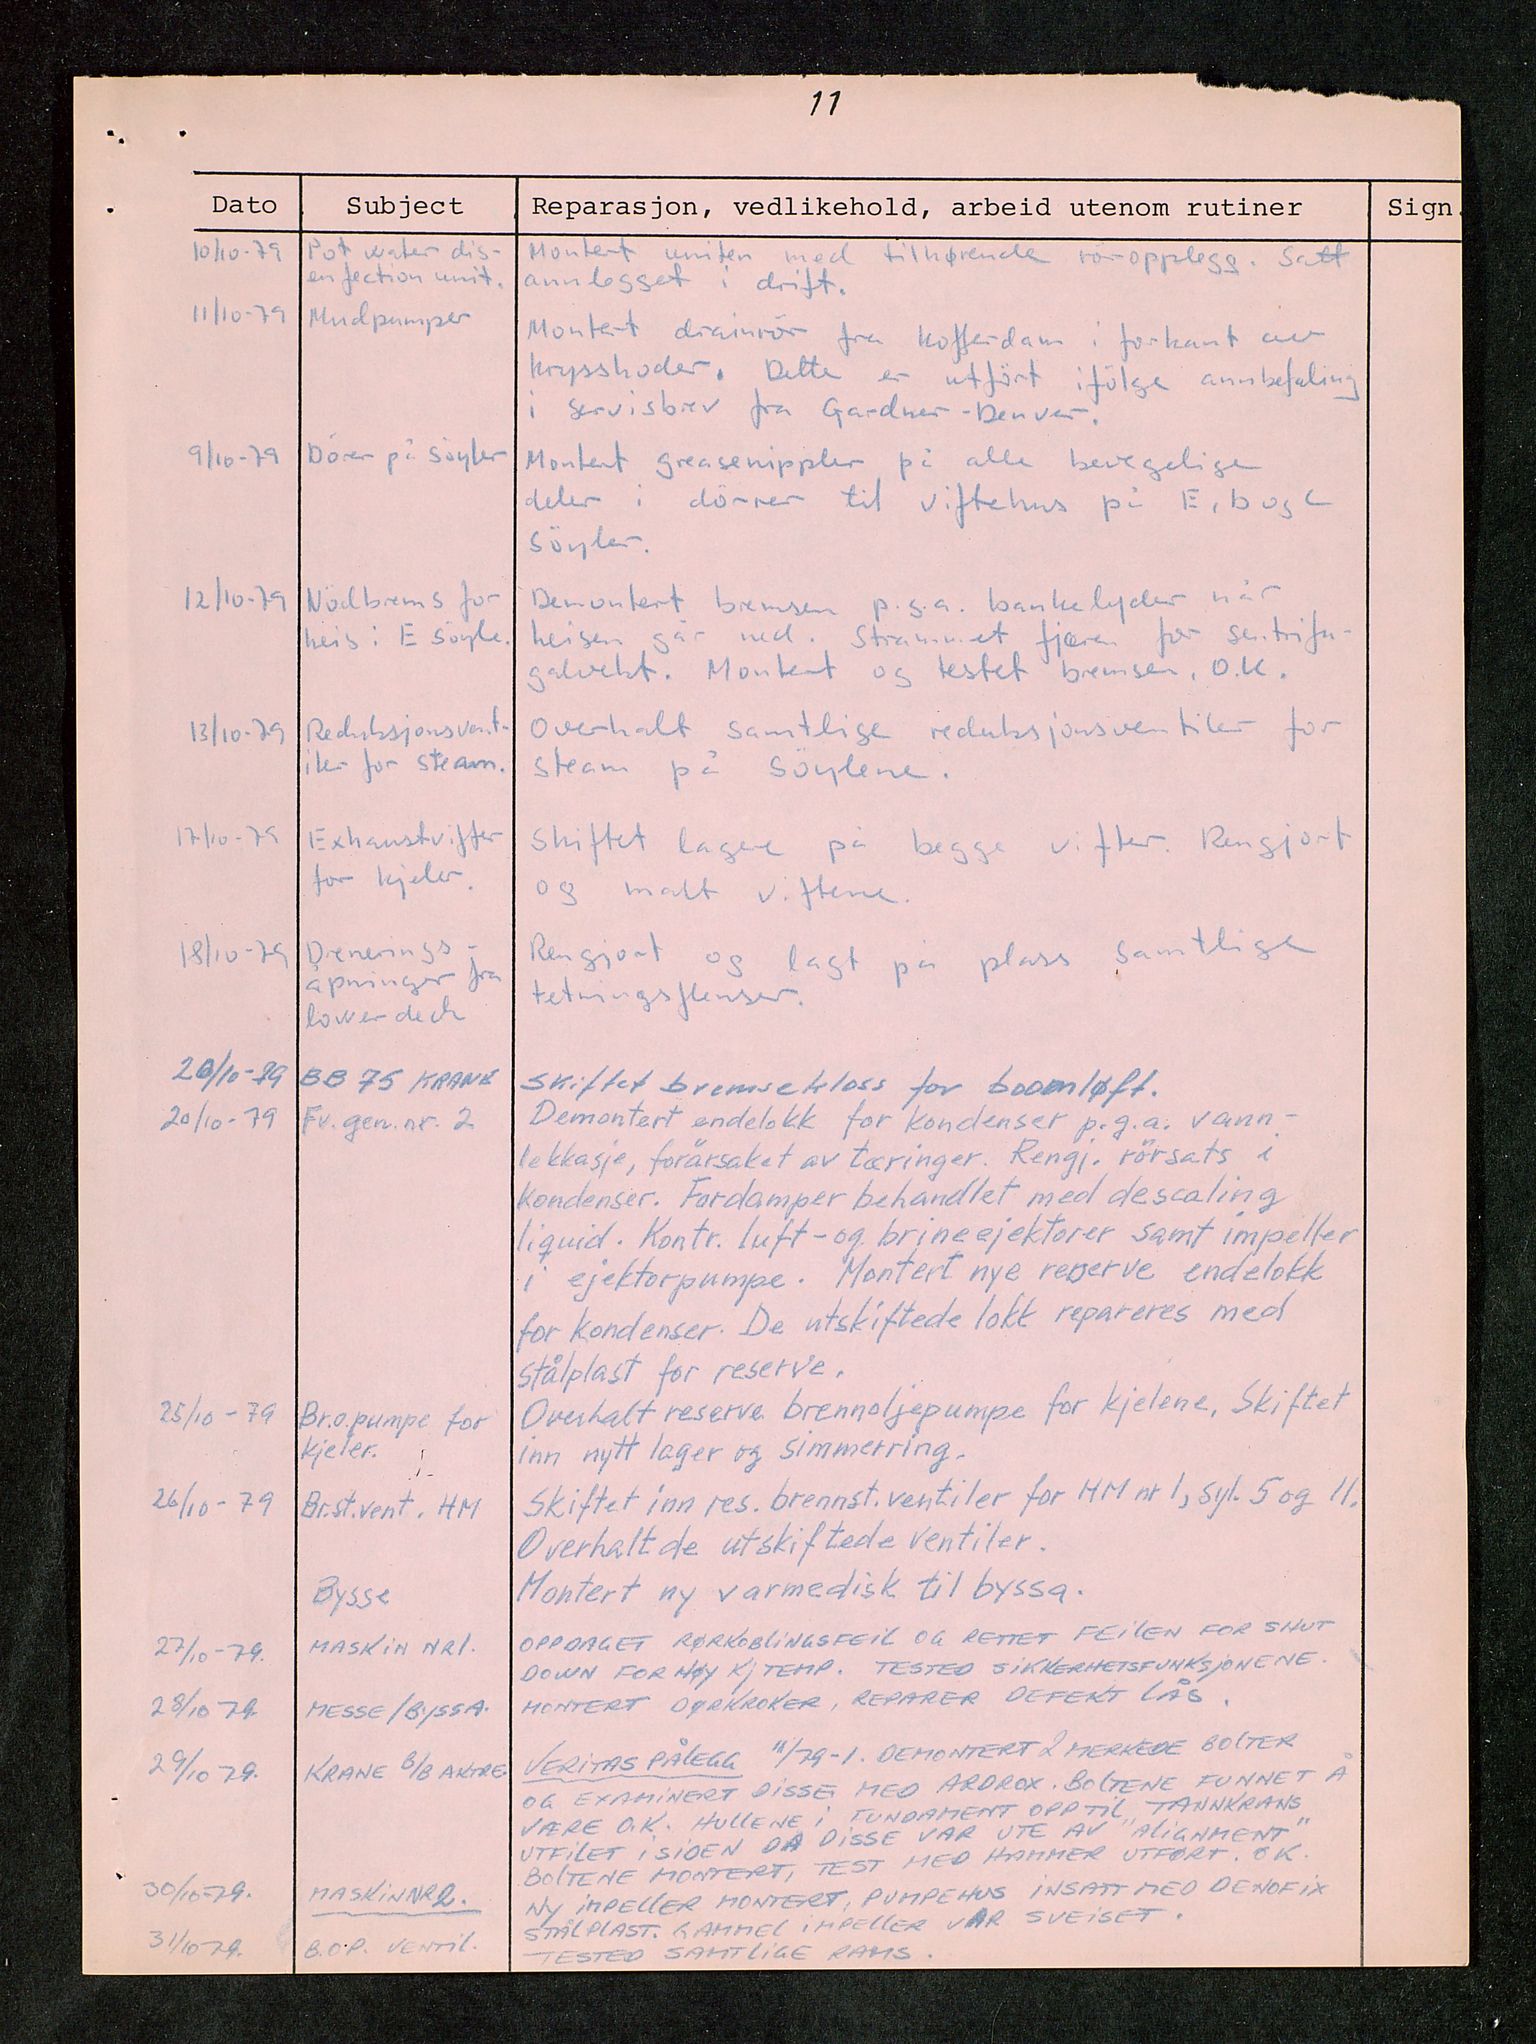 11
Dato Subject Reparasjon, vedlikehold, arbeid utenom rutiner Sign.
10/10-79 Pot water dis- Montert uniten med tilhørende röropplegg. Satt
enfection unit. annlegget i drift.
11/10-79 Mudpumper
Montert drainrör fra kofferdam i forkant av
krysshoder. Dette er utfört ifölge annbefaling
i servisbrev fra Gardner-Denver.
9/10-79 Dörer på Söyler Montert greasenippler på alle bevegelige
deler i dörrer til viftehus på E, b og c
söyler.
12/10-79 Nödbrems for Demontert bremsen p.g.a. bankelyder når
heis i E söyle. heisen går ned. Strammet fjæren for sentrifu-
galvekt. Montert og testet bremsen. O.K.
13/10-79 Reduksjonsvent- Overhalt samtlige reduksjonsventiler for
iler for steam. steam på söylene.
17/10-79 Exhaustvifter Skiftet lagere på begge vifter. Rengjort
for kjeler. og malt viftene.
18/10-79 Drenerings- Rengjort og lagt på plass samtlige
åpninger fra tetningsflenser.
lower deck
20/10-79 BB 75 KRANE Skiftet bremsekloss for boomløft.
20/10-79 Fv. gen. nr. 2 Demontert endelokk for kondenser p.g.a. vann-
lekkasje, forårsaket av tæringer. Rengj. rörsats i
kondenser. Fordamper behandlet med descaling
liquid. Kontr. luft- og brineejektorer samt impeller
i ejektorpumpe. Montert nye reserve endelokk
for kondenser. De utskiftede lokk repareres med
stålplast for reserve.
25/10-79 Br.o.pumpe for Overhalt reserve brennoljepumpe for kjelene, Skiftet
kjeler. inn nytt lager og simmerring.
26/10-79 Br.st.vent. HM Skiftet inn res. brennst.ventiler for HM nr 1, syl. 5 og 11.
Overhalt de utskiftede ventiler.
Bysse Montert ny varmedisk til byssa.
27/10-79. MASKIN NR1. OPPDAGET RØRKOBLINGSFEIL OG RETTET FEILEN FOR SHUT
DOWN FOR HØY KJ TEMP. TESTED SIKKERHETSFUNKSJONENE.
28/10 79. MESSE/BYSSA. MONTERT DØRKROKER, REPARER DEFEKT LÅS.
29/10 79. KRANE B/B AKTRE. VERITAS PÅLEGG 11/79-1. DEMONTERT 2 MERKEDE BOLTER
OG EXAMINERT DISSE MED ARDROX. BOLTENE FUNNET Å
VÆRE O.K. HULLENE I FUNDAMENT OPP TIL TANNKRANS
UTFILET I SIDEN DA DISSE VAR UTE AV "ALIGNMENT"
BOLTENE MONTERT, TEST MED HAMMER UTFØRT. OK.
30/10-79. MASKIN NR2. NY IMPELLER MONTERT, PUMPEHUS INSATT MED DENOFIX
STÅLPLAST. GAMMEL IMPELLER VAR SVEISET.
31/10 79. B.O.P. VENTIL. TESTED SAMTLIGE RAMS.